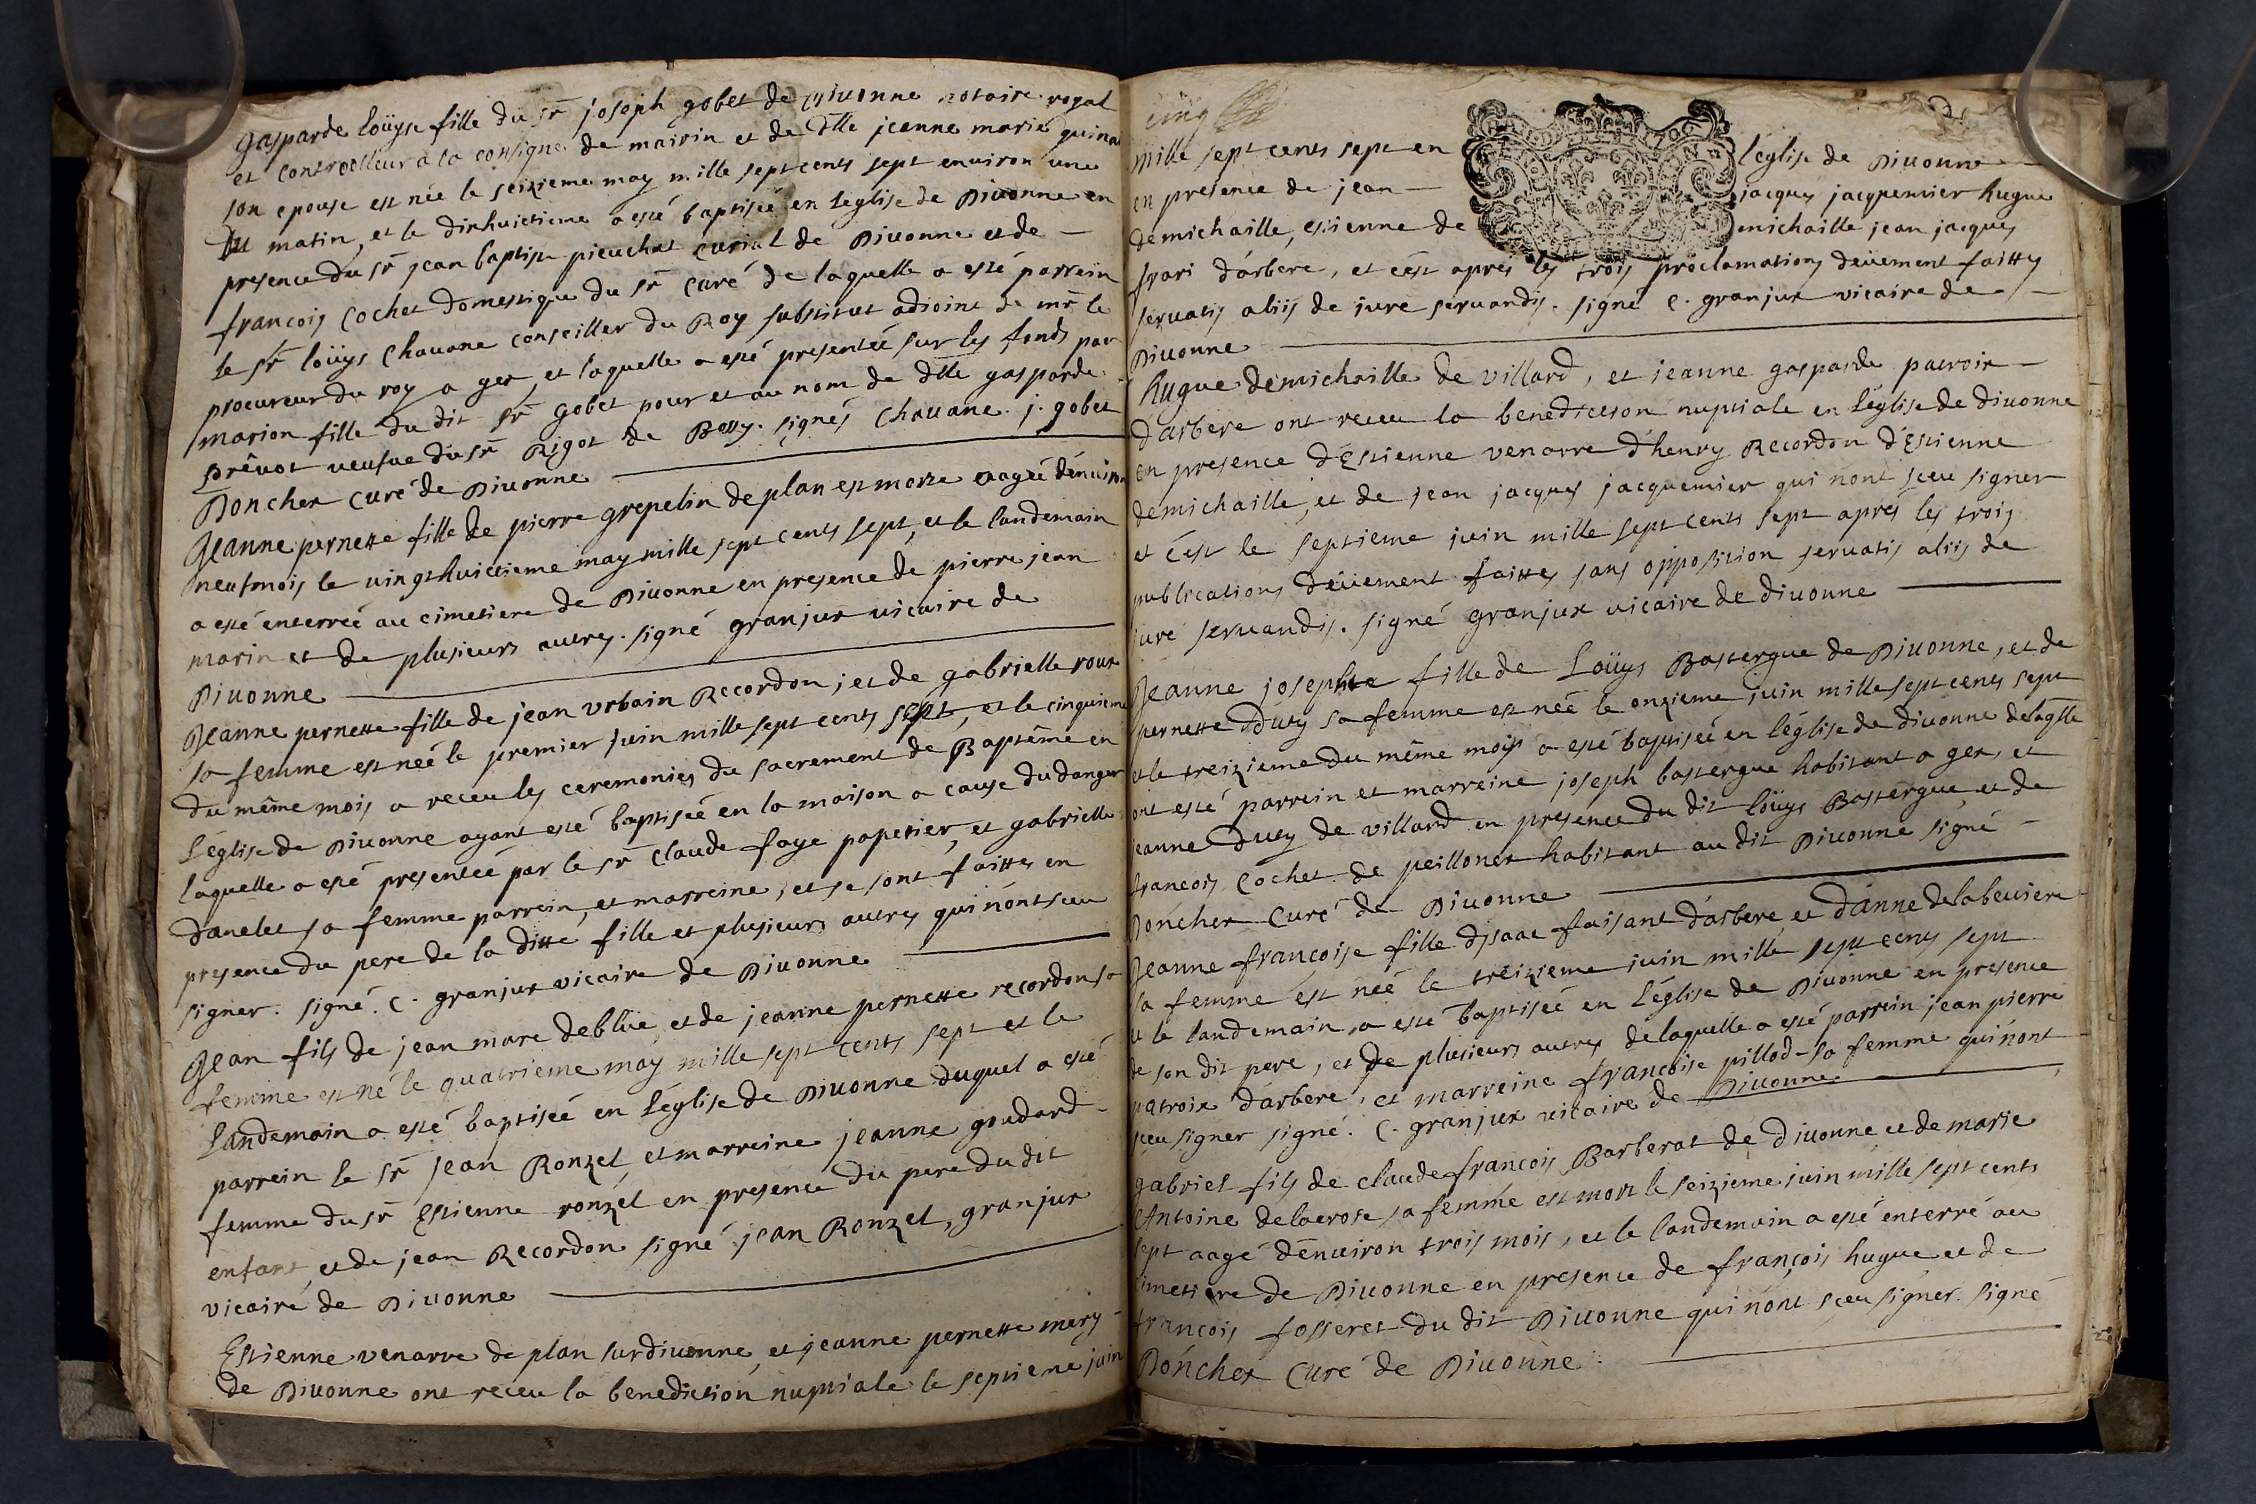 Gasparde loüyse fille du sr joseph gobet de divonne notaire royal
et controelleur à la consigne de mairin et de dlle jeanne marie quinat
son epouse est née le seizieme may mille sept cents sept environ une
du matin, et le dixhuictieme a esté baptiseé en leglise de Divonne en
presence du sr jean baptiste picuchat curial de Divonne et de
francois Cochet domestique du sr curé de laquelle a esté parrein
le sr loüys Chavane conseiller du Roy substitut adioint de mr le
procureur du roy a gex, et laquelle a esté presenteé sur les fonds par
marion fille du dit sr gobet pour et au nom de dlle gasparde
prêvot veufve du sr Rigot de Bossy. signés Chavane. j. gobet
Doncher Curé de Divonne
Jeanne pernette fille de pierre grepelin de plan est morte aageé dénviron
neuf mois le vingt huictieme may mille sept cents sept, et le landemain
a esté enterreé au cimetiere de Divonne en presence de pierre jean
marin et de plusieurs autres. signé granjux vicaire de
Divonne
Jeanne pernette fille de jean vrbain Recordon, et de gabrielle roux
sa femme est neé le premier juin mille sept cents sept, et le cinquieme
du même mois a receu les ceremonies du sacrement de Baptême en
l'église de Divonne ayant esté baptiseé en la maison a cause du danger
laquelle a esté presenteé par le sr Claude faye papetier, et gabrielle
danelet sa femme parrein, et marreine, et se sont faittes en
presence du pere de la ditte fille et plusieurs autres qui nónt sceu
signer. signé. C. granjux vicaire de Divonne
Jean fils de jean marc deblüe, et de jeanne pernette recordon sa
femme est né le quatrieme may mille sept cents sept et le
landemain a esté baptiseé en léglise de Divonne duquel a esté
parrein le sr jean Ronzel, et marreine jeanne goudard
femme du sr Estienne ronzel en presence du pere du dit
enfant, et de jean Recordon signé jean Ronzel, granjux
vicaire de Divonne
Estienne venarre de plan sur divonne, et jeanne pernette mery
de Divonne ont receu la benediction nuptiale le septieme juin
cinq
mille sept cents sept en l'église de Divonne
en presence de jean jacques jacquemier hugue
demichaille, estienne de michaille jean jacques
frari dárbere, et cést apres les trois proclamations deüement faittes
servatis aliis de jure servandis. signé C. granjux vicaire de
Divonne
Hugue demichaille de villard, et jeanne gasparde patroix
dárbere ont receu la benediction nuptiale en léglise de divonne
en presence dÉstienne venarre dhenry Recordon dÉstienne
demichaille, et de jean jacques jacquemier qui nont sceu signer
et cést le septieme juin mille sept cents sept aprés les trois
publications deüement faittes sans opposition servatis aliis de
jure servandis. signé granjux vicaire de divonne
Jeanne josephte fille de Loüys Bastergue de Divonne, et de
pernette duty sa femme est neé le onzieme juin mille sept cents sept
et le treizieme du même mois a esté baptiseé en léglise de divonne de laqlle
ont esté parrein et marreine joseph bastergue habitant a gex, et
jeanne duty de villard en presence du dit loüys Bastergue et de
francois Cochet de peillonex habitant au dit Divonne signé
Doncher Curé de Divonne
Jeanne francoise fille dJsaac faisant dárbere et dánne delabeviere
sa femme ést neé le treizieme juin mille sept cents sept
et le landemain a esté baptiseé en léglise de Divonne en presence
de son dit pere, et de plusieurs autres de laquelle a esté parrein jean pierre
patroix dárbere, et marreine francoise pillod sa femme qui nónt
sceu signer signé. C. granjux vicaire de Divonne
Gabriel fils de claude francois Barberat de divonne et de marie
Antoine delacrose sa femme est mort le seizieme juin mille sept cents
sept aagé dénviron trois mois, et le landemain a esté enterré au
cimetiere de Divonne en presence de françois hugue et de
françois fosseret du dit Divonne qui nónt sceu signer. signé
Doncher Curé de Divonne